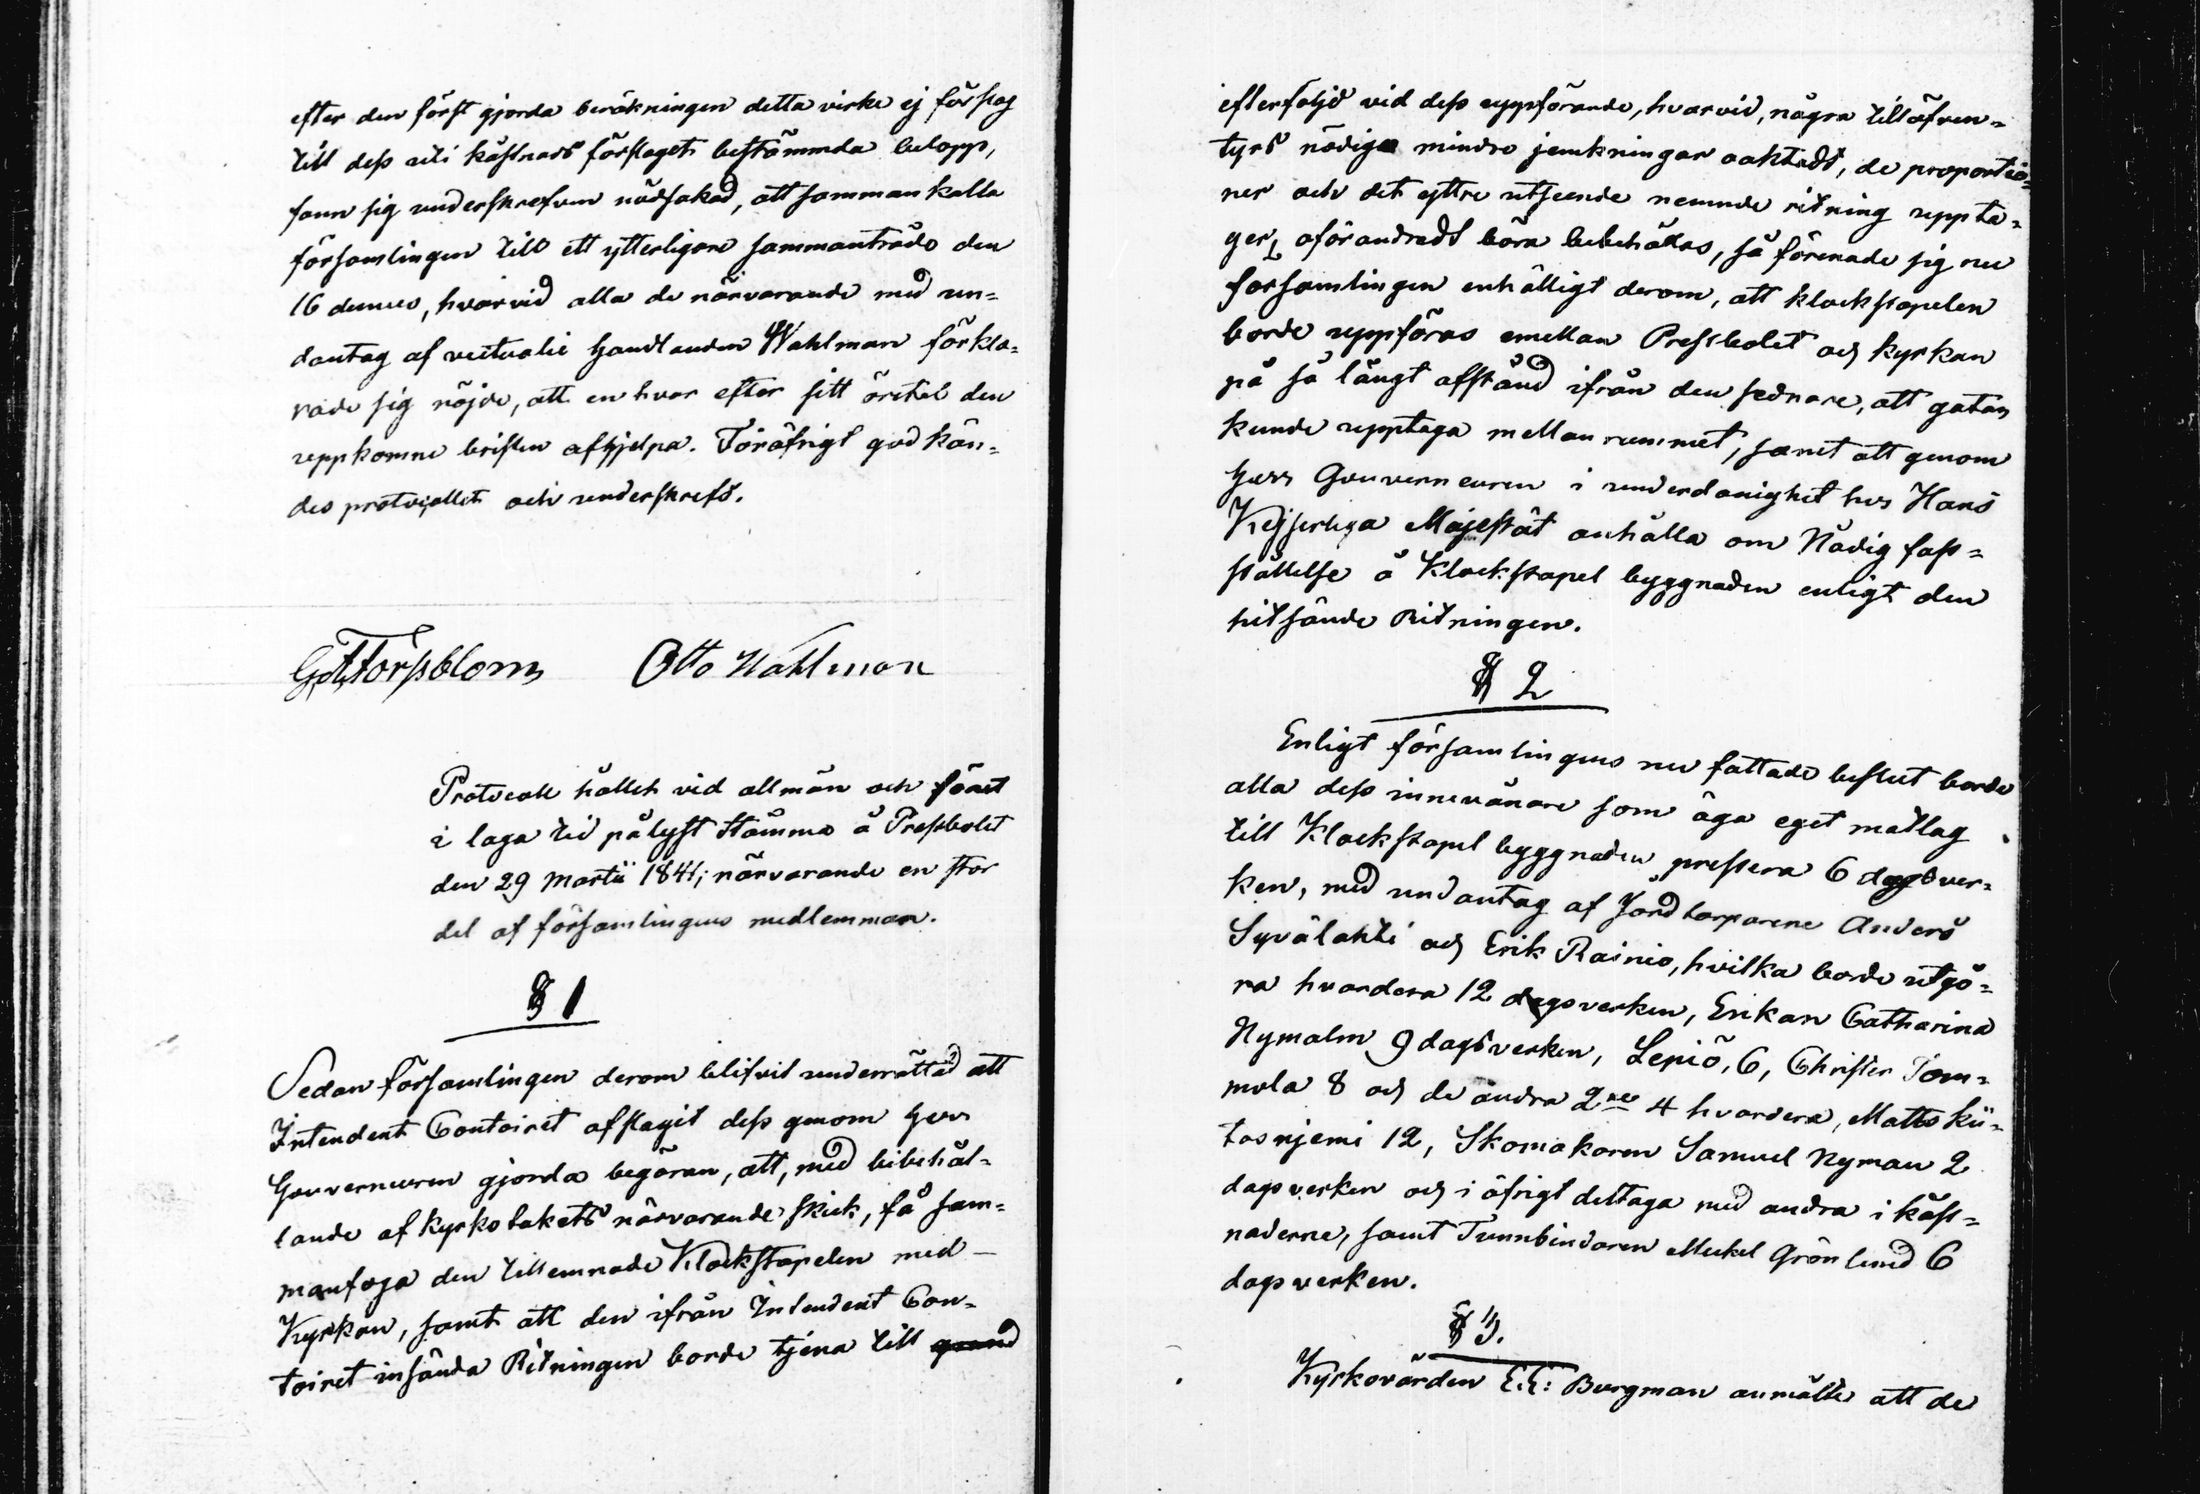 efter den först gjorda beräkningen detta virke ej förslog
till dess uti kåstnads förslaget bestämmda belopp,
fann sig underskrefven nödsakad, att sammankalla
församlingen till ett ytterligare sammanträde den
16 dennes, hvarvid alla de närvarande med un=
dantag af Handlanden Wahlman förkla=
rade sig nöjde, att en hvar efter sitt öretal den
uppkomne bristen afhjelpa. Föröfrigt godkän=
des protocollet och underskrefs.
Otto Wahlman
Protocoll hållet vid allmän och förut
i laga tid pålyst Stämma å Prestbolet
den 29 Martii 1841; närvarande en stor
del af församlingens medlemmar.
§ 1
Sedan Församlingen derom blifvit underrättad att
Intendent Contoiret afslagit dess genom Herr
Gouverneuren gjorda begäran, att, med bibehål=
lande af kyrkotakets närvarande skick, få sam=
manfoga den tillernnade Klockstapelen med
Kyrkan, samt att den ifrån Intendent Con=
toiret insända Ritningen borde tjena till grund
efterföljd vid dess uppförande, hvarvid, några tilläfven=
tyrs nödiga mindre jemkningar oaktadt, de proportio=
ner och det yttre utseende nemnde ritning uppta=
ger, oförandradt böra bibehållas, så förenade sig nu
församlingen enhälligt derom, att klockstapelen
borde uppföras emellan Prestbolet och kyrkan
på så långt afstånd ifrån den sednare, att gatan
kunde upptaga mellanrummet, samt att genom
Herr Gouverneuren i underdånighet hos Hans
Kejserliga Majestät anhålla om Nådig fast=
ställelse å Klockstapel byggnaden enligt den
hitsände Ritningen.
§ 2
Enligt församlingens nu fattade beslut borde
alla dess innevånare som äga eget matlag
till Klockstapel byggnaden prestera 6 dagsver=
ken, med undantag af Jordtorparene Anders
Syvälahti och Erik Rainio, hvilka borde utgö=
ra hvardera 12 dagsverken, Enkan Catharina
Nymalm 9 dagsverken, Lepiö, 6, Christer Tom=
mola 8 och de andra 2ne 4 hvardera, Matts Kii=
tasnjemi 12, Skomakaren Samuel Nyman 2
dagsverken och i öfrigt deltaga med andra i kåst=
naderne, samt Tunnbindaren Mickel Grönlund 6
dagsverken.
§ 3.
Kyrkovärden Bergman anmälte att de